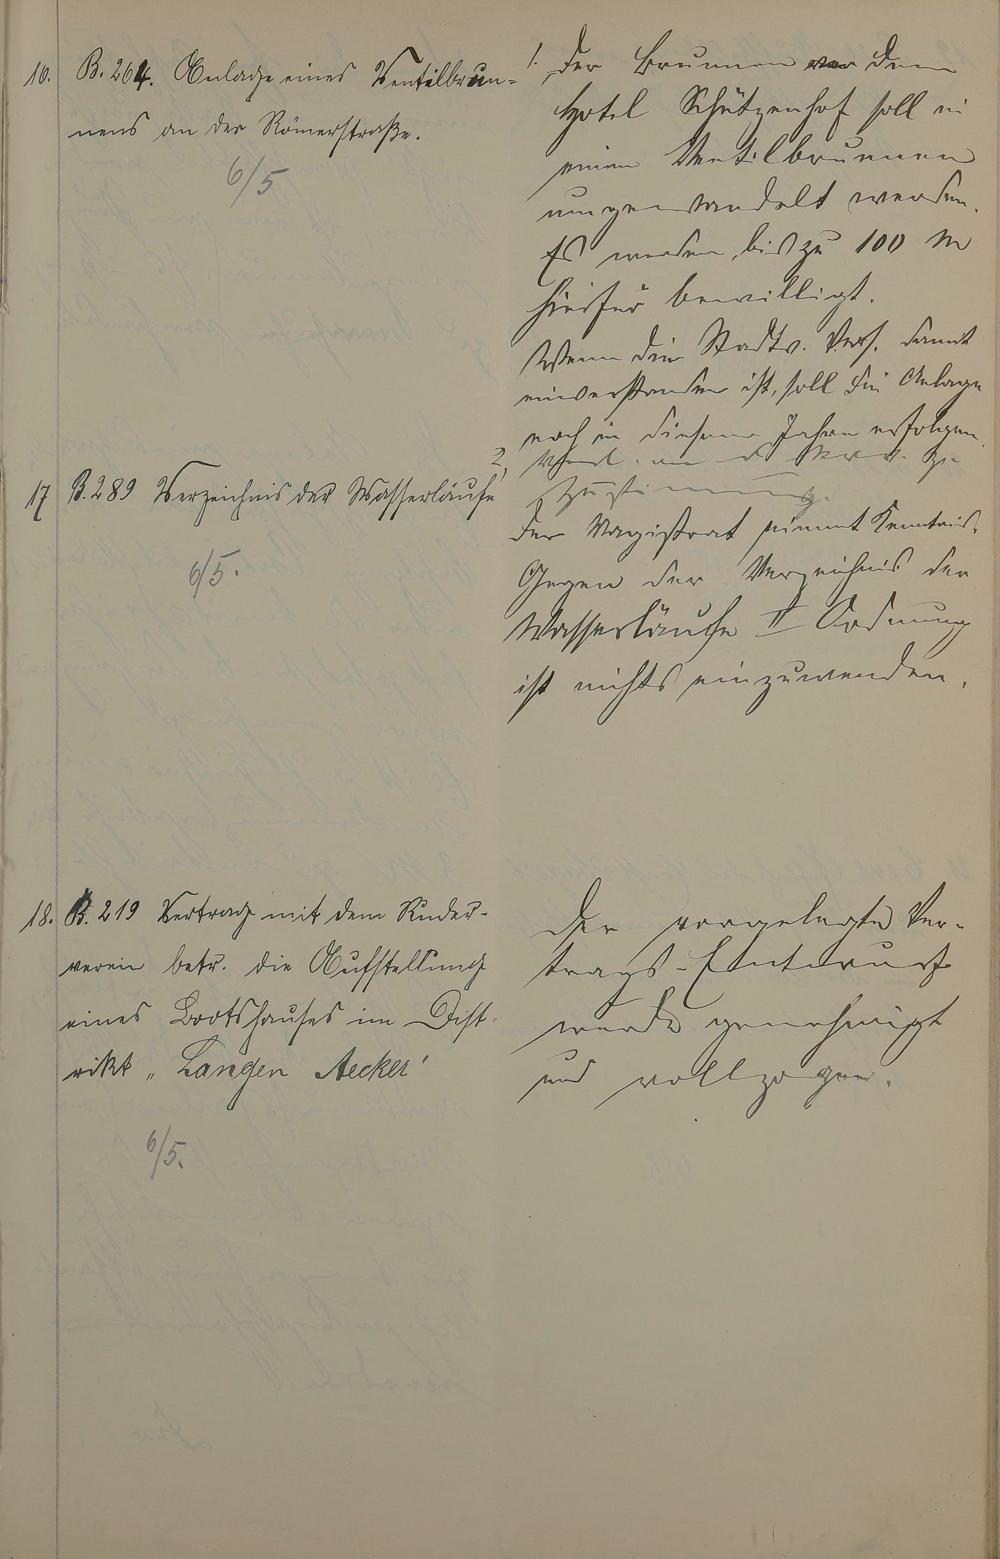 16. B. 264. Anlage eines Ventilbrun-
nens an der Römerstraße.
6/5
1. Der Brunnen vor dem
Hotel Schützenhof soll in
einen Ventilbrunnen
umgewandelt werden.
Es werden bis zu 100 M
hierfür bewilligt.
Wenn die Stadtv. Vers. damit
einverstanden ist, soll die Anlage
noch in diesem Jahre erfolgen.
2,
Zustimmung.
17 B. 289 Verzeichnis der Wasserläufe
6/5.
Der Magistrat nimmt Kenntnis.
Gegen das Verzeichnis der
Wasserläufe II Ordnung
ist nichts einzuwenden.
18. B. 219 Vertrag mit dem Ruder-
verein betr. die Aufstellung
eines Bootshauses im Dist-
rikt „Langen Aecker"
6/5.
Der vorgelegte Ver-
trags-Entwurf
wurde genehmigt
und vollzogen.